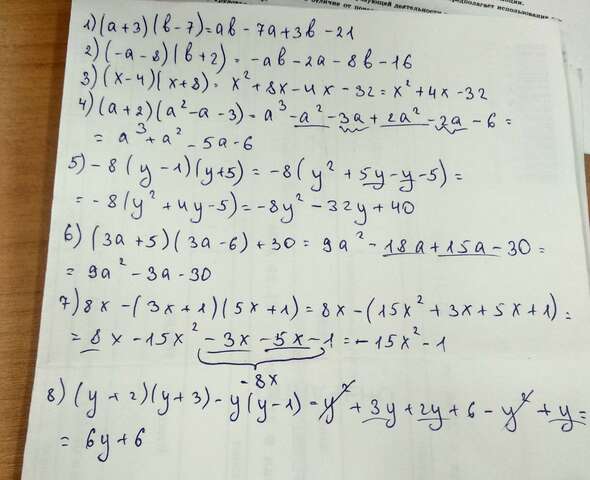 отличие от поне
1) (a+3)(b-7)=ab-7a+3b-21
2) (-a-8)(b+2)=-ab-2a-8b-16
3) (x-4)(x+8)=x²+8x-4x-32=x²+4x-32
4) (a+2)(a²-a-3)=a³-a²-3a+2a²-2a-6=
=a³+a²-5a-6
5) -8(y-1)(y+5)=-8(y²+5y-y-5)=
=-8(y²+4y-5)=-8y²-32y+40
6) (3a+5)(3a-6)+30=9a²-18a+15a-30=
=9a²-3a-30
7) 8x-(3x+1)(5x+1)=8x-(15x²+3x+5x+1)=
=8x-15x²-3x-5x-1=-15x²-1
-8x
8) (y+2)(y+3)-y(y-1)=y²+3y+2y+6-y²+y=
=6y+6